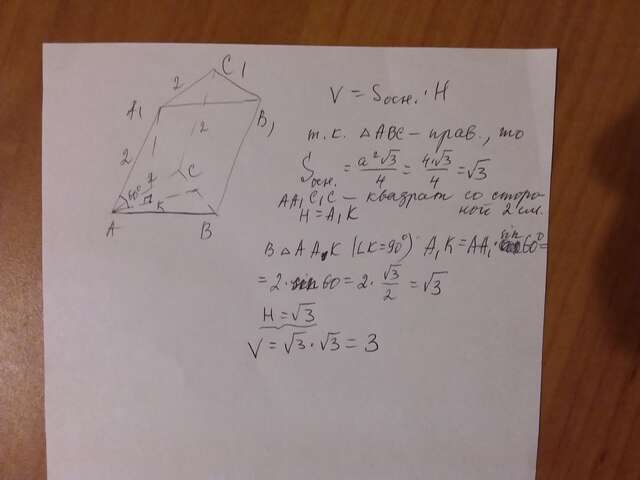 2
C1
A1
B1
2
2
C
60°
K
A
B
V = Sосн. · H
т.к. △ABC – прав., то
Sосн. = a²√3/4 = 4·√3/4 = √3
AA1C1C – квадрат со сторо-
H = A1K ной 2 см.
В △AA1K (∠K=90°) A1K = AA1 · sin 60° =
= 2 · sin 60 = 2 · √3/2 = √3
H = √3
V = √3 · √3 = 3